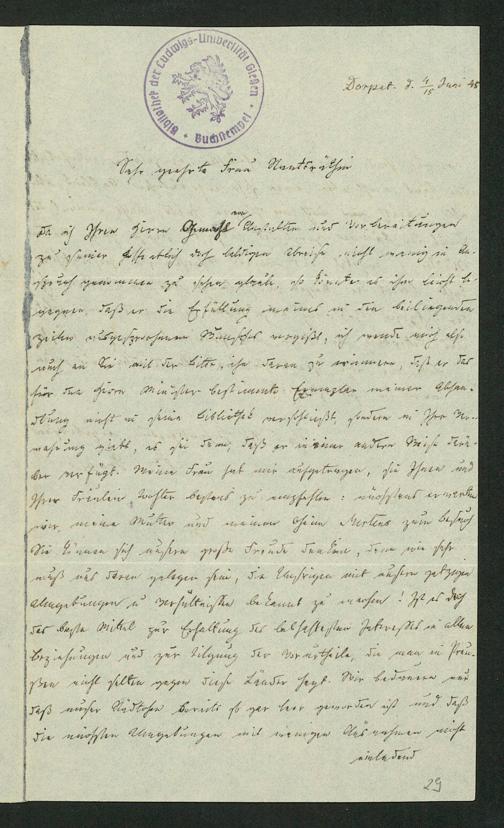 Bibliothek der Ludwigs-Universität Gießen
Buchstempel
Dorpat. d. 4/15 Juni 45
Sehr geehrte Frau
da ich Ihren Herrn Gemahl an Anstalten und Vorbereitungen
zu seiner hoffentlich doch baldigen Abreise nicht wenig in An-
spruch genommen zu sehen glaube, so könnte es ihm leicht be-
gegnen, daß er die Erfüllung meines in den beiliegenden
Zeilen ausgesprochenen Wunsches vergißt, ich wende mich also
auch an Sie mit der Bitte, ihn daran zu erinnern, daß er das
für den Herrn Minister bestimmte Exemplar meiner Abhan-
dlung nicht in seine Bibliothek verschließt, sondern in Ihre Ver-
wahrung giebt, es sei denn, daß er in einer andern Weise darü-
ber verfügt. Meine Frau hat mir aufgetragen, sie Ihnen und
Ihrer Fräulein Tochter bestens zu empfehlen: nächstens erwarten
wir meine Mutter und meinen Oheim Mertens zum Besuch
Sie können sich unsere große Freude denken, denn wie sehr
muß uns daran gelegen sein, die Unsrigen mit unsern jetzigen
Umgebungen u Verhältnissen bekannt zu machen! Ist es doch
das beste Mittel zur Erhaltung des lebhaftesten Interesses in allen
Beziehungen und zur Tilgung der Vorurtheile, die man in Preu-
ßen nicht selten gegen diese Länder hegt. Wir bedauern nur
daß unser bereits so gar leer geworden ist und daß
die nächsten Umgebungen mit wenigen Ausnahmen nicht
einladend
29